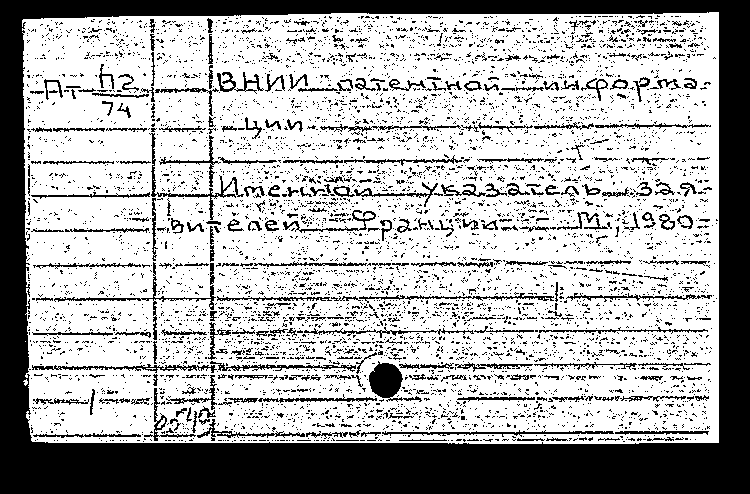 Пт П2 ВНИИ патентной информа-
74
ции
Именной указатель зая-
вителей Франции. - М., 1980-
1